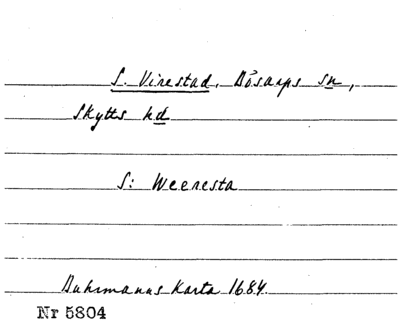 S. Virestad, Bösarps sn,
Skytts hd
S: Weeresta
Buhrmanns Karta 1684.
Nr 5804